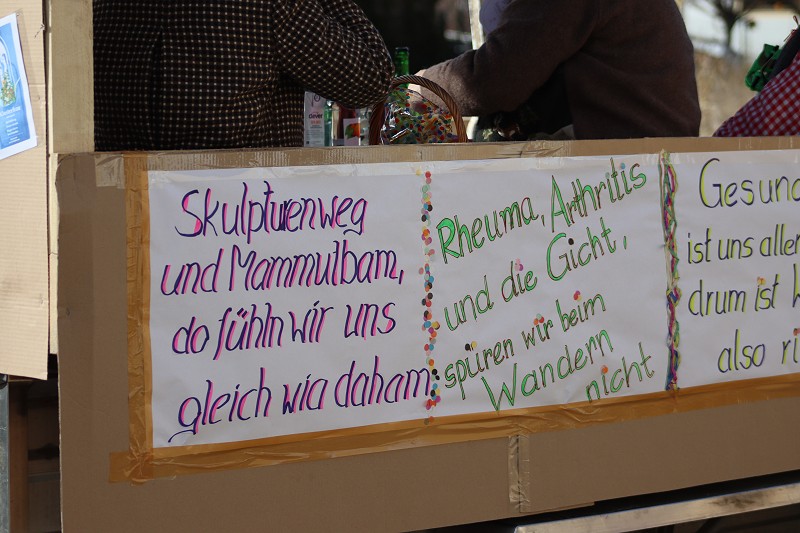 Skulpturenweg
und Mammutbam,
do fühln wir uns
gleich wia daham
Rheuma, Arthritis
und die Gicht,
spüren wir beim
Wandern
nicht
Gesund
ist uns aller
drum ist
also ri